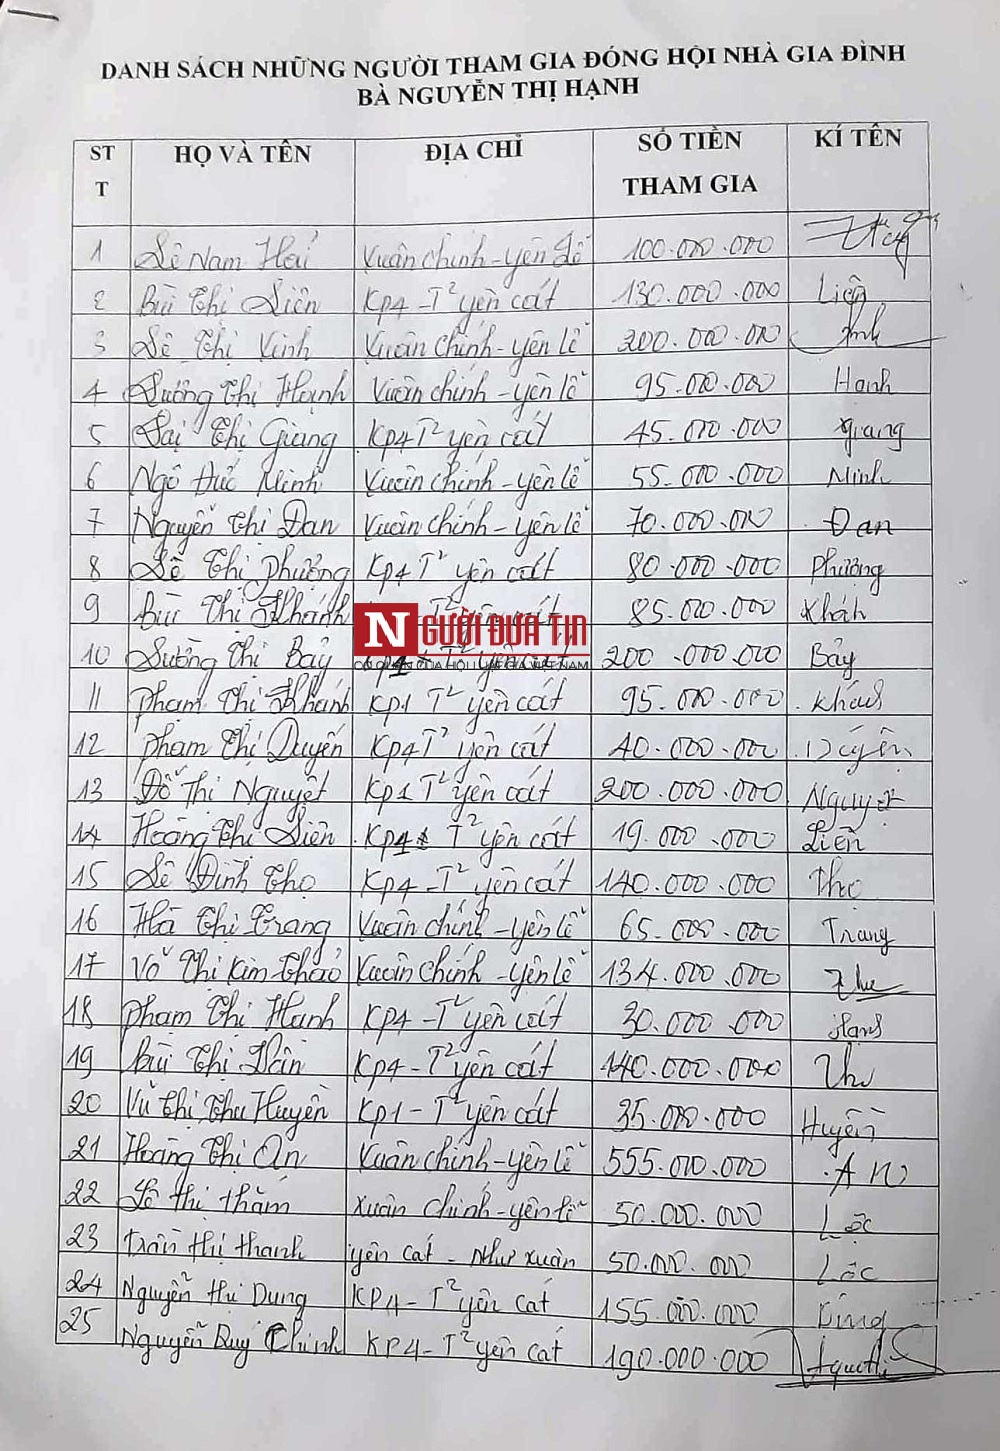 DANH SÁCH NHỮNG NGƯỜI THAM GIA ĐÓNG HỘI NHÀ GIA ĐÌNH
BÀ NGUYỄN THỊ HẠNH
STT HỌ VÀ TÊN ĐỊA CHỈ SỐ TIỀN THAM GIA KÍ TÊN
1 Lê Nam Hải Xuân chính - yên lễ 100.000.000
2 Bùi Thị Liên KP4 - T² yên cát 130.000.000 Liên
3 Lê Thị Vinh Xuân chính - yên lễ 200.000.000 Vinh
4 Lường Thị Hạnh Xuân chính - yên lễ 95.000.000 Hạnh
5 Lại Thị Giang KP4 T² yên cát 45.000.000 giang
6 Ngô Đức Minh Xuân chính - yên lễ 55.000.000 Minh
7 Nguyễn Thị Đan Xuân chính - yên lễ 70.000.000 Đan
8 Lê Thị Phượng KP4 T² yên cát 80.000.000 Phượng
9 Bùi Thị Khánh T² yên cát 85.000.000 Khánh
NGƯỜI ĐƯA TIN
CƠ QUAN CỦA HỘI LUẬT GIA VIỆT NAM
10 Lường Thị Bảy T² yên cát 200.000.000 Bảy
11 Phạm Thị Khánh KP1 T² yên cát 95.000.000 Khánh
12 Phạm Thị Duyến KP4 T² yên cát 40.000.000 Duyến
13 Đỗ Thị Nguyệt KP1 T² yên cát 200.000.000 Nguyệt
14 Hoàng Thị Liên T² yên cát 19.000.000 Liên
15 Lê Đình Thọ KP4 - T² yên cát 140.000.000 Thọ
16 Hà Thị Trang Xuân chính - yên lễ 65.000.000 Trang
17 Võ Thị Kim Thảo Xuân chính - yên lễ 134.000.000
18 Phạm Thị Hạnh KP4 - T² yên cát 30.000.000 Hạnh
19 Bùi Thị KP4 - T² yên cát 140.000.000
20 Vũ Thị Thu Huyền KP1 - T² yên cát 35.000.000 Huyền
21 Hoàng Thị An Xuân chính - yên lễ 555.000.000 AN
22 Thị Thắm Xuân chính - yên lễ 50.000.000 Lộc
23 Trần Thị Thanh yên cát - Như Xuân 50.000.000 Lộc
24 Nguyễn Thị Dung KP4 - T² yên cát 155.000.000 Dung
25 Nguyễn Duy Chinh KP4 - T² yên cát 190.000.000